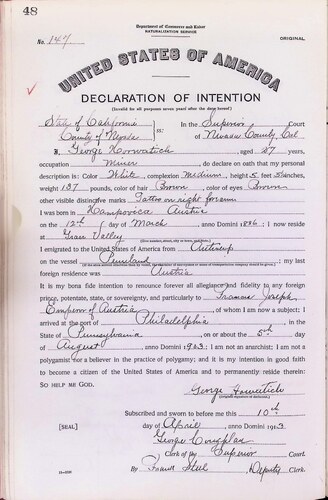 48
Department of Commerce and Labor
NATURALIZATION SERVICE
No. 147
ORIGINAL
UNITED STATES OF AMERICA
DECLARATION OF INTENTION
(Invalid for all purposes seven years after the date hereof)
State of California
County of
ss:
In the Superior Court
of Nevada County Cal
I, George, aged 27 years,
occupation Miner, do declare on oath that my personal
description is: Color White, complexion Medium, height 5 feet inches,
weight 137 pounds, color of hair Brown, color of eyes Brown
other visible distinctive marks Tattoo on right forearm
I was born in Austria
on the 12th day of March, anno Domini 1886; I now reside
at Grass Valley
I emigrated to the United States of America from Antwerp
on the vessel; my last
foreign residence was Austria
It is my bona fide intention to renounce forever all allegiance and fidelity to any foreign
prince, potentate, state, or sovereignty, and particularly to Francis Joseph
Emperor of Austria, of whom I am now a subject; I
arrived at the port of Philadelphia, in the
State of Pennsylvania on or about the 5th day
of August, anno Domini 1903; I am not an anarchist; I am not a
polygamist nor a believer in the practice of polygamy; and it is my intention in good faith
to become a citizen of the United States of America and to permanently reside therein:
SO HELP ME GOD.
George
(Original signature of declarant.)
Subscribed and sworn to before me this 10th
[SEAL] day of April, anno Domini 1913
George
Clerk of the Superior Court.
By Deputy Clerk.